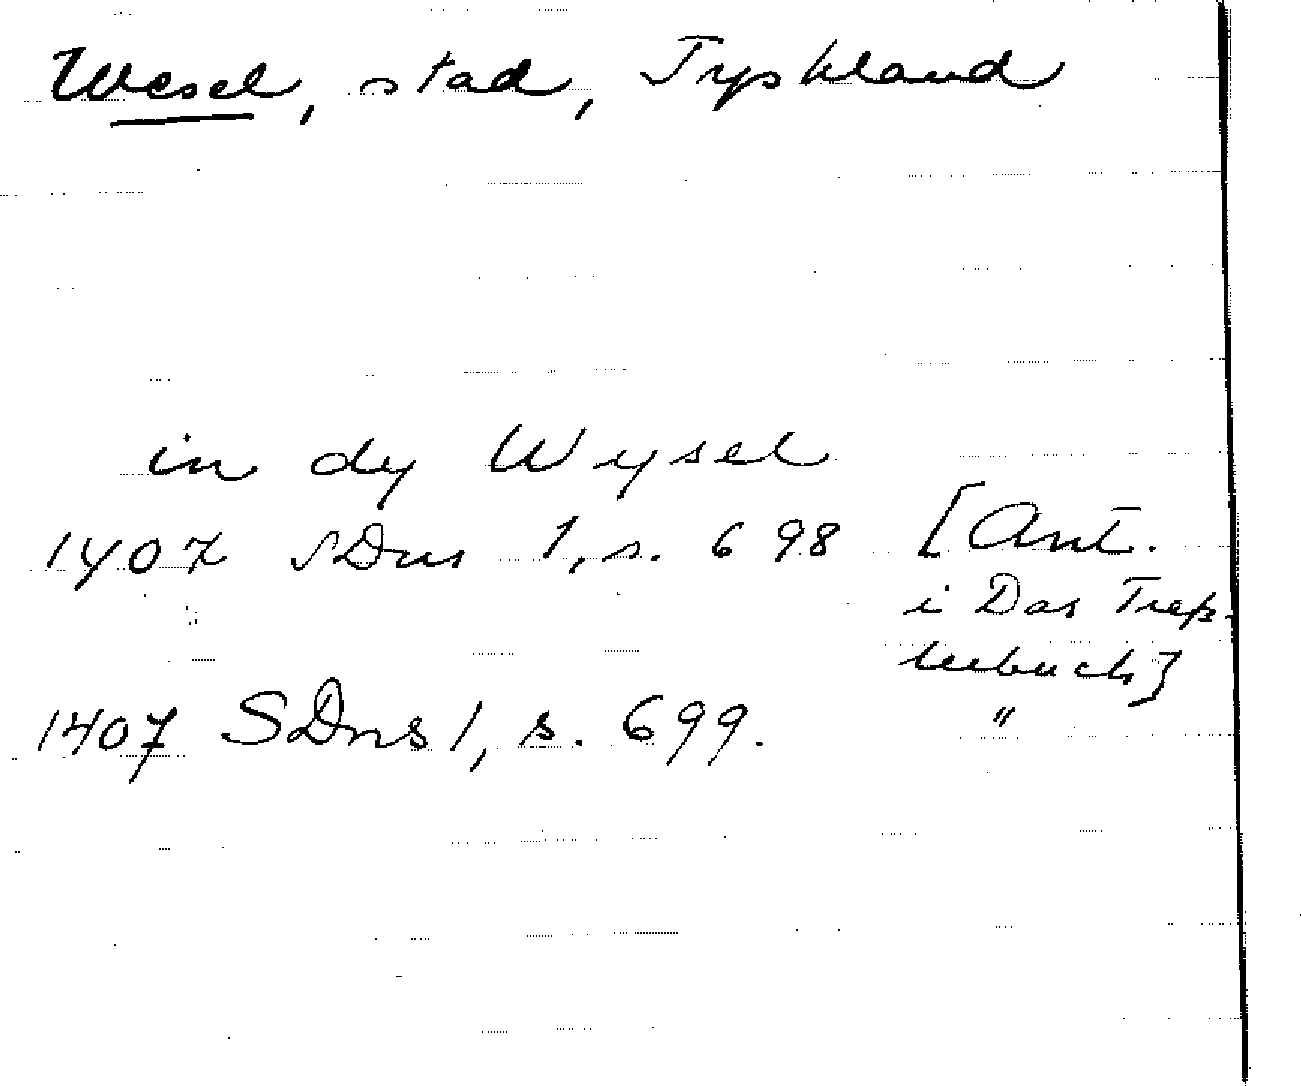 Wesel, stad, Tyskland
in dy Wysel
1407 SDns 1, s. 698 [Ant.
i Das Treß-
lerbuch]
1407 SDns 1, s. 699. "